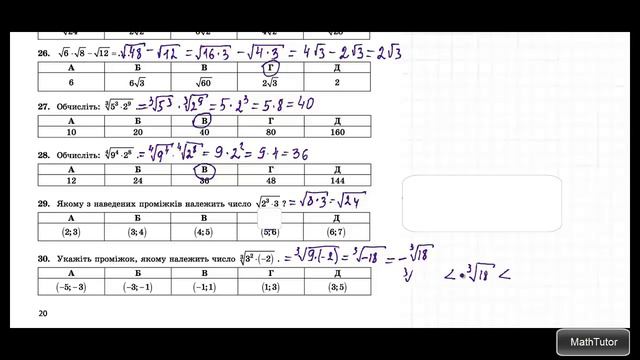 √24 2√2 √6 4√2 √28
26. √6·√8 − √12 = √48 − √12 = √16·3 − √4·3 = 4√3 − 2√3 = 2√3
А Б В Г Д
6 6√3 √60 2√3 2
27. Обчисліть: ∛5³·2⁹ = ∛5³ · ∛2⁹ = 5·2³ = 5·8 = 40
А Б В Г Д
10 20 40 80 160
28. Обчисліть: ∜9⁴·2⁸ = ∜9⁴ · ∜2⁸ = 9·2² = 9·4 = 36
А Б В Г Д
12 24 36 48 144
29. Якому з наведених проміжків належить число √2³·3 ? = √8·3 = √24
А Б В Г Д
(2; 3) (3; 4) (4; 5) (5; 6) (6; 7)
30. Укажіть проміжок, якому належить число ∛3²·(−2) . = ∛9·(−2) = ∛−18 = −∛18
∛ < ∛18 <
А Б В Г Д
(−5; −3) (−3; −1) (−1; 1) (1; 3) (3; 5)
20
MathTutor